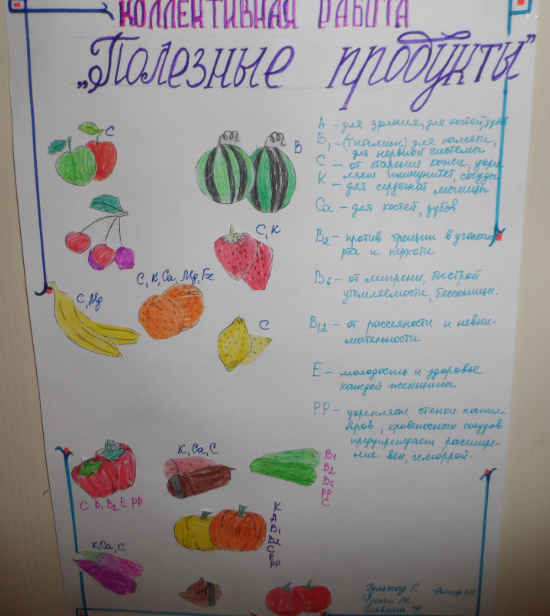 КОЛЛЕКТИВНАЯ РАБОТА
„Полезные продукты"
A – для зрения, для костей, зубов
B1 – (тиамин) для памяти,
для нервной системы
C – от старения кожи, укре
пляет иммунитет, сосуды
K – для сердечной мышцы
Ca – для костей, зубов
B2 – против трещин в уголках
рта и перхоти
B6 – от мигрени, быстрой
утомляемости, бессонницы.
B12 – от рассеяности и невни-
мательности
E – молодость и здоровье
каждой женщины
PP – укрепляет стенки капил-
ляров, кровеносных сосудов
предупреждает расшире-
ние вен, геморрой.
C
B
C, K
C, K, Ca, Mg, Fe
C, Mg
C
K, Ca, C
B1
B2
B6
PP
C
C B1 B2 E PP
K
A
B1
B2
C
E
PP
K, Ca, C